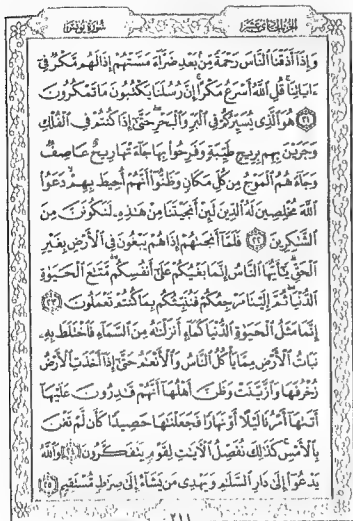 الجزء الحادي عشر
سورة يونس
وَإِذَآ أَذَقْنَا ٱلنَّاسَ رَحْمَةً مِّنۢ بَعْدِ ضَرَّآءَ مَسَّتْهُمْ إِذَا لَهُم مَّكْرٌ فِىٓ
ءَايَاتِنَا ۚ قُلِ ٱللَّهُ أَسْرَعُ مَكْرًا ۚ إِنَّ رُسُلَنَا يَكْتُبُونَ مَا تَمْكُرُونَ
﴿٢١﴾ هُوَ ٱلَّذِى يُسَيِّرُكُمْ فِى ٱلْبَرِّ وَٱلْبَحْرِ ۖ حَتَّىٰٓ إِذَا كُنتُمْ فِى ٱلْفُلْكِ
وَجَرَيْنَ بِهِم بِرِيحٍ طَيِّبَةٍ وَفَرِحُوا۟ بِهَا جَآءَتْهَا رِيحٌ عَاصِفٌ
وَجَآءَهُمُ ٱلْمَوْجُ مِن كُلِّ مَكَانٍ وَظَنُّوٓا۟ أَنَّهُمْ أُحِيطَ بِهِمْ ۙ دَعَوُا۟
ٱللَّهَ مُخْلِصِينَ لَهُ ٱلدِّينَ لَئِنْ أَنجَيْتَنَا مِنْ هَٰذِهِۦ لَنَكُونَنَّ مِنَ
ٱلشَّٰكِرِينَ ﴿٢٢﴾ فَلَمَّآ أَنجَىٰهُمْ إِذَا هُمْ يَبْغُونَ فِى ٱلْأَرْضِ بِغَيْرِ
ٱلْحَقِّ ۗ يَٰٓأَيُّهَا ٱلنَّاسُ إِنَّمَا بَغْيُكُمْ عَلَىٰٓ أَنفُسِكُم ۖ مَّتَٰعَ ٱلْحَيَوٰةِ
ٱلدُّنْيَا ۖ ثُمَّ إِلَيْنَا مَرْجِعُكُمْ فَنُنَبِّئُكُم بِمَا كُنتُمْ تَعْمَلُونَ ﴿٢٣﴾
إِنَّمَا مَثَلُ ٱلْحَيَوٰةِ ٱلدُّنْيَا كَمَآءٍ أَنزَلْنَٰهُ مِنَ ٱلسَّمَآءِ فَٱخْتَلَطَ بِهِۦ
نَبَاتُ ٱلْأَرْضِ مِمَّا يَأْكُلُ ٱلنَّاسُ وَٱلْأَنْعَٰمُ حَتَّىٰٓ إِذَآ أَخَذَتِ ٱلْأَرْضُ
زُخْرُفَهَا وَٱزَّيَّنَتْ وَظَنَّ أَهْلُهَآ أَنَّهُمْ قَٰدِرُونَ عَلَيْهَآ
أَتَىٰهَآ أَمْرُنَا لَيْلًا أَوْ نَهَارًا فَجَعَلْنَٰهَا حَصِيدًا كَأَن لَّمْ تَغْنَ
بِٱلْأَمْسِ ۚ كَذَٰلِكَ نُفَصِّلُ ٱلْءَايَٰتِ لِقَوْمٍ يَتَفَكَّرُونَ ﴿٢٤﴾ وَٱللَّهُ
يَدْعُوٓا۟ إِلَىٰ دَارِ ٱلسَّلَٰمِ وَيَهْدِى مَن يَشَآءُ إِلَىٰ صِرَٰطٍ مُّسْتَقِيمٍ ﴿٢٥﴾
٢١١